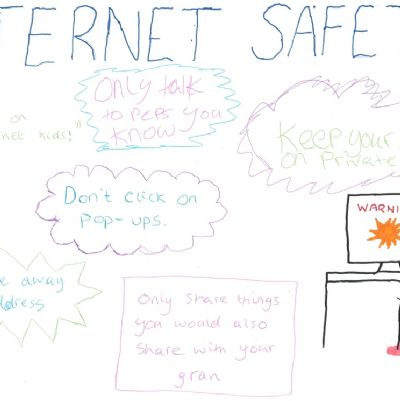 TERNET SAFET
on
net kids!"
Only talk
to peps you
know
Keep your
on private
Don't click on
pop-ups.
WARNI
e away
ddress
Only share things
you would also
share with your
gran